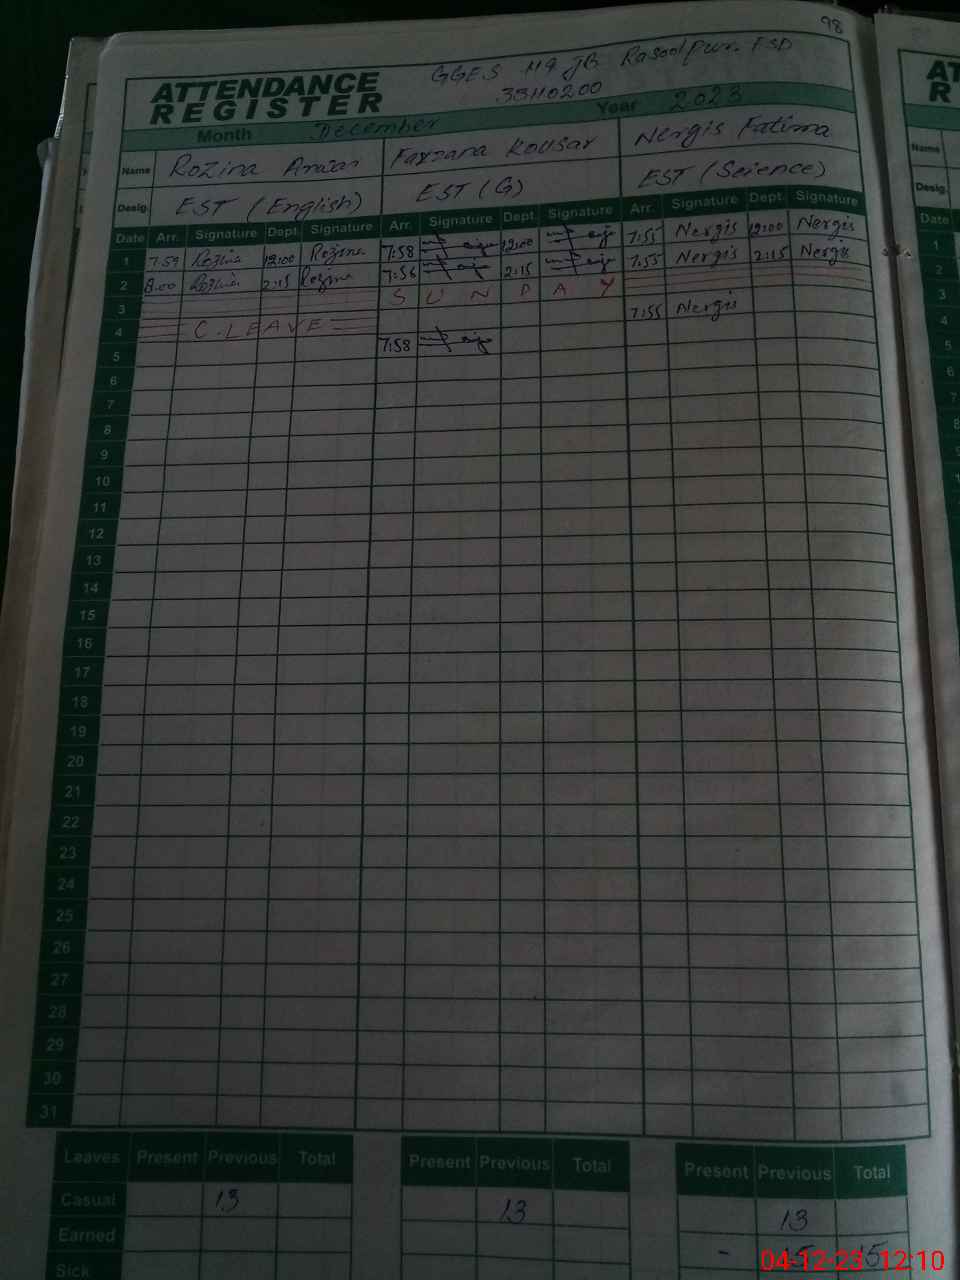 98
ATTENDANCE REGISTER
GGES 119 JB Rasoolpur. FSD
33110200
Month December Year 2023
Name Rozina Farzana Kousar Nergis Fatima
Desig. EST (English) EST (G) EST (Science)
Date Arr. Signature Dept. Signature Arr. Signature Dept. Signature Arr. Signature Dept. Signature
1 7:59 Rozina 12:00 Rozina 7:58 12:00 7:55 Nergis 12:00 Nergis
2 8:00 Rozina 2:15 Rozina 7:56 2:15 7:55 Nergis 2:15 Nergis
3 S U N D A Y
4 C. LEAVE 7:58 7:55 Nergis
5
6
7
8
9
10
11
12
13
14
15
16
17
18
19
20
21
22
23
24
25
26
27
28
29
30
31
Leaves Present Previous Total Present Previous Total Present Previous Total
Casual 13 13 13
Earned - 15 15
Sick
AT
R
Name
Desig.
Date
1
2
3
4
5
6
7
8
04-12-23 12:10